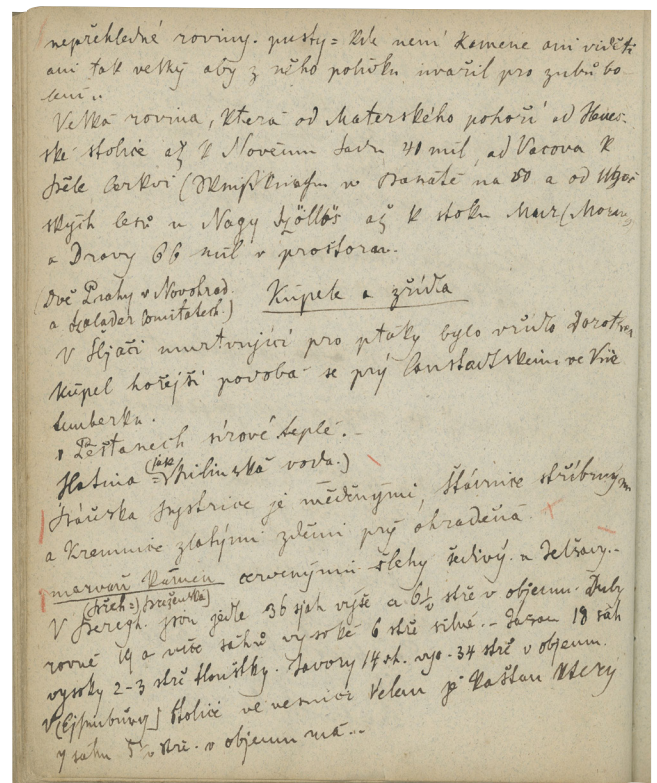 nepřehledné roviny. pusty = kde není kamene ani viděti
ani tak velký aby z něho polívku uvařil pro zubů bo-
lení „
Velká rovina, která od Materského pohoří od Heves-
ské stolice až k Novému Sadu 40 mil, od Vacova k
Běle Cerkvi ( w Banátě na 80 a od
ských lesů u Nagy Szöllös až k stoku Mur (
a Dravy 66 mil v prostoran.
(Dvě Prahy v Novohrad.
a Szalader Comitatech.)
Kúpele a zřídla
V Sljači umrtvující pro ptáky bylo vřídlo
kúpel hořejší povoba se prý ve Vir-
temberku.
Pešťanech sírové teplé. -
Slatina (jak = Bilinská voda.)
Báňská Bystrice je měděnými, Štávnice stříbrnými
a Kremnice zlatými zděmi prý ohradená.
kámen červenými šlehy šedivý a
V Beregh. jsou jedle 36 sáh výše a 6½ stř v objemu. Duby
rovné 19 a více sáhů vysoké 6 stř silné. - 18 sáh
vysoký 2-3 stř tloušťky. Javory 14 st. vys - 34 stř v objem.
V stolici ve vesnice je kaštan který
7 sáhu 5½ stř. v objemu má...